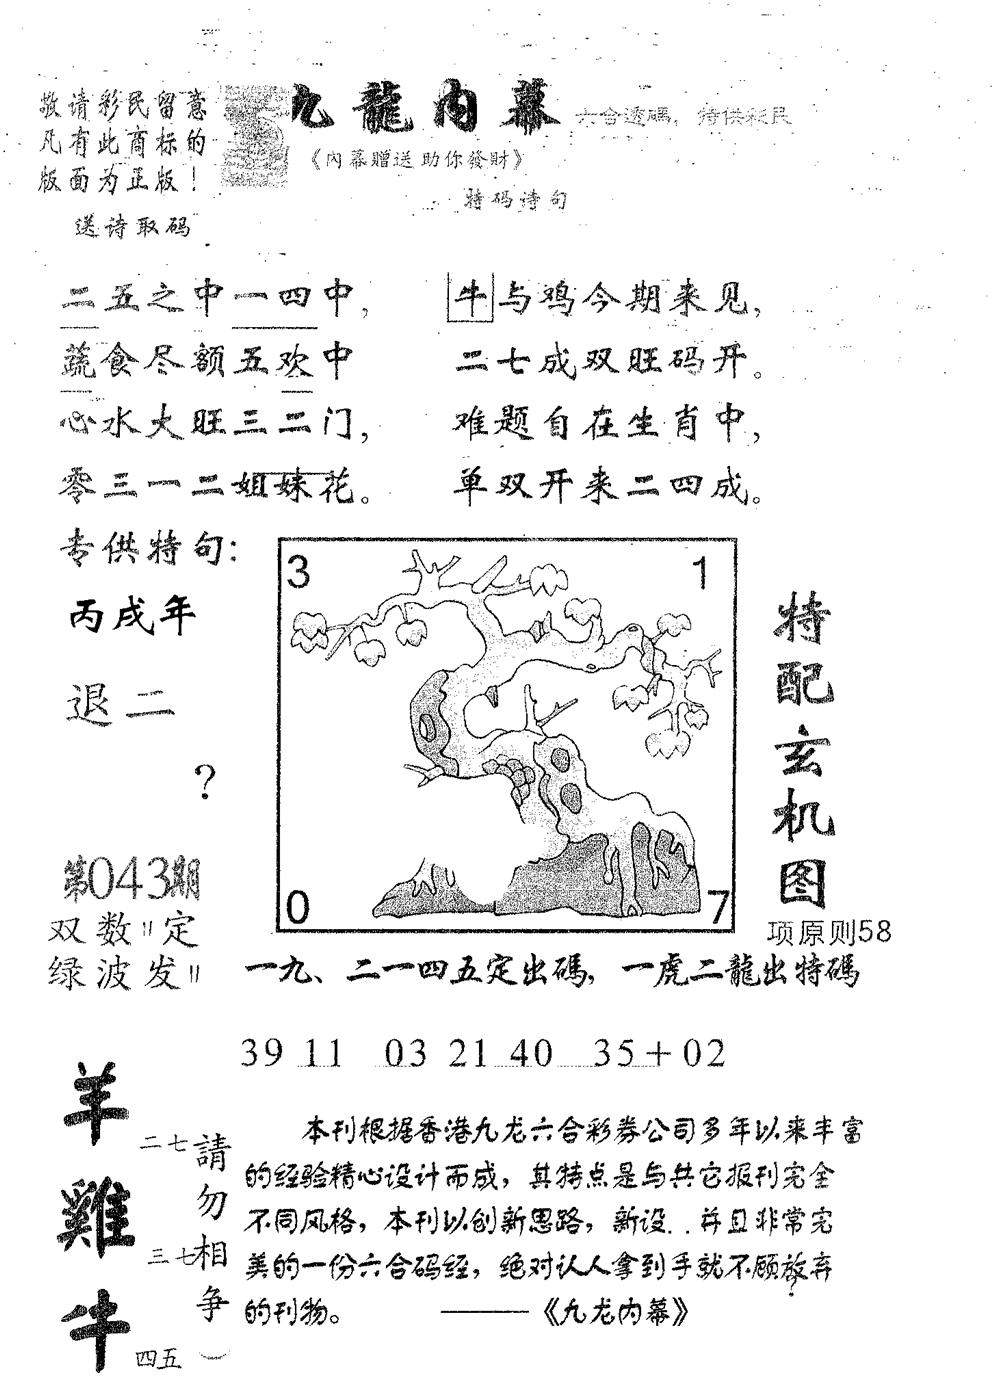 敬请彩民留意
凡有此商标的
版面为正版！
九龍内幕
六合透碼，特供彩民
《内幕贈送助你發財》
特码诗句
送诗取码
二五之中一四中，
蔬食尽额五欢中
心水大旺三二门，
零三一二姐妹花。
牛与鸡今期来见，
二七成双旺码开。
难题自在生肖中，
单双开来二四成。
专供特句：
丙戌年
退二
？
3
1
0
7
特配玄机图
项原则58
第043期
双数‖定
绿波发‖
一九、二一四五定出碼，一虎二龍出特碼
39 11 03 21 40 35＋02
羊
二七
雞
三七
牛
四五
請勿相争
本刊根据香港九龙六合彩券公司多年以来丰富
的经验精心设计而成，其特点是与其它报刊完全
不同风格，本刊以创新思路，新设..并且非常完
美的一份六合码经，绝对认人拿到手就不顾放弃
的刊物。 ——《九龙内幕》
？